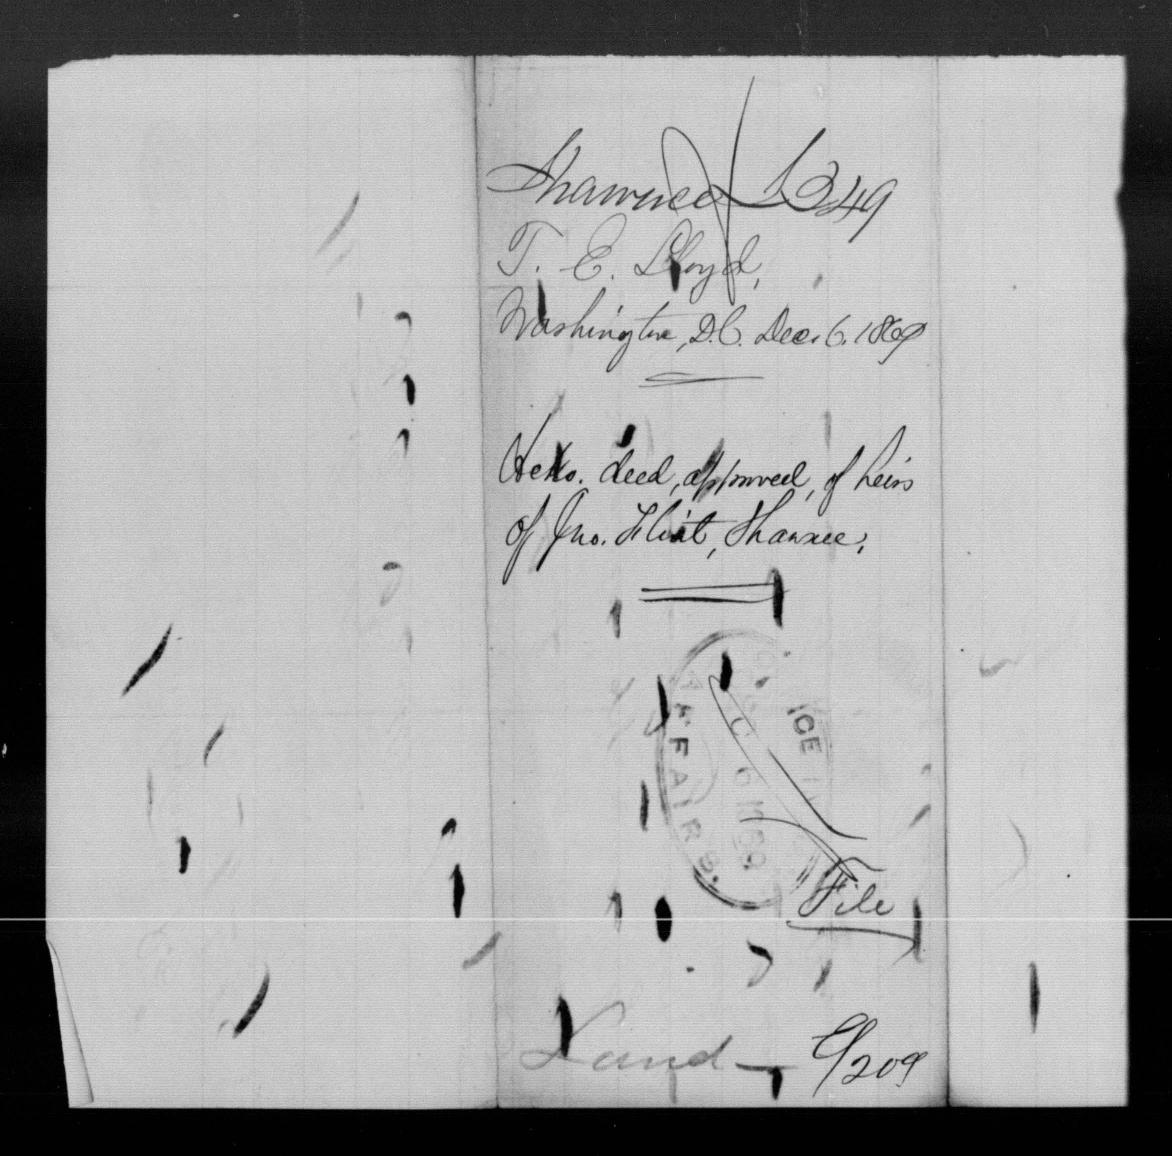 Shawnee L 349
T. E. Lloyd,
Washington, D.C. Dec. 6. 1869
deed, approved, of heirs
of Jno. Flint, Shawnee.
OFFICE
AFFAIRS.
6 1869
File
Land
209